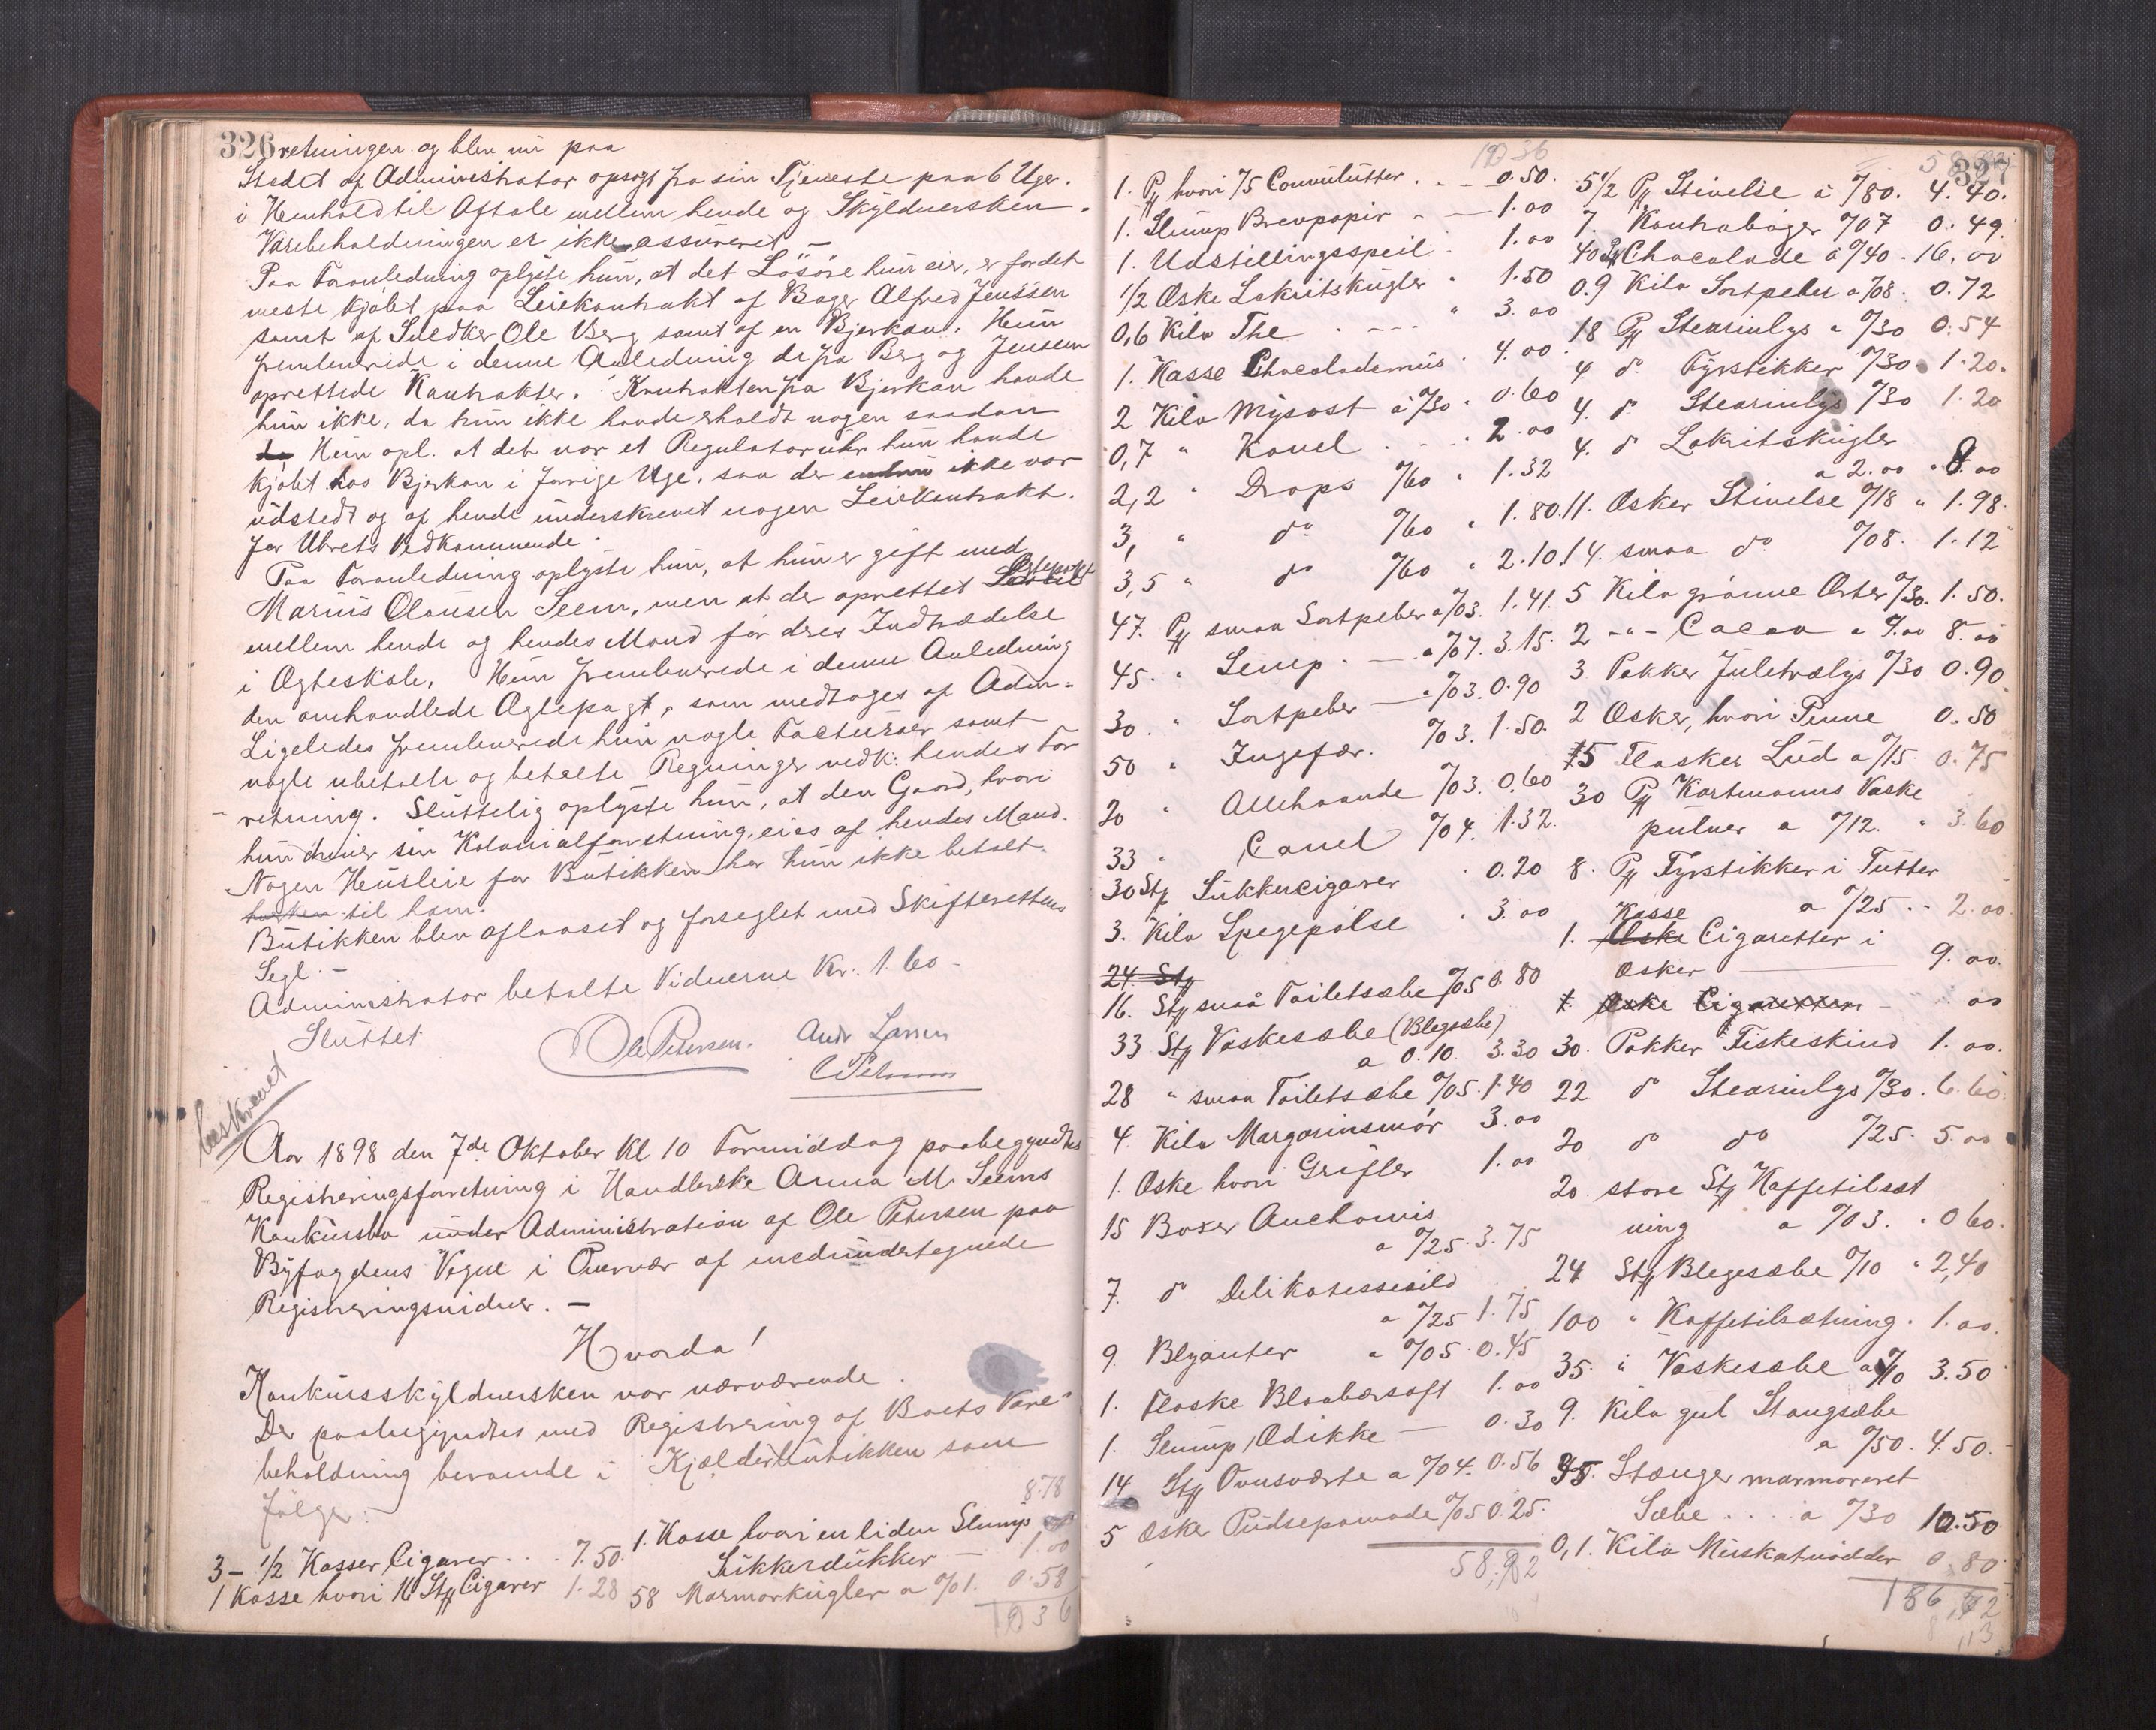 326 retningen og blev nu paa
Stedet af Administrator opsagt fra sin Tjeneste paa 6 Uger.
i Henhold til Aftale mellem hende og Skyldnersken.
Varebeholdningen er ikke assureret –
Paa Foranledning oplyste hun, at det Løsøre hun eier, er for det
meste kjøbt paa Leiekontrakt af Bager Alfred Jenssen
samt af Snedker Ole Berg samt af en Bjerkan. Hun
fremleverede i denne Anledning de fra Berg og Jensen
oprettede Kontrakter. Kontrakten fra Bjerkan havde
hun ikke, da hun ikke havde erholdt nogen saadan
da Hun opl. at det var et Regulatoruhr hun havde
kjøbt hos Bjerkan i forrige Uge, saa der endnu ikke var
udstedt og af hende underskrevet nogen Leiekontrakt.
for Uhrets Vedkommende.
Paa Foranledning oplyste hun, at hun er gift med
Marius Olausen Seem, men at der oprettet Ægtepakt
mellem hende og hendes Mand før deres Indtrædelse
i Ægteskab. Hun fremleverede i denne Anledning
den omhandlede Ægtepagt, som medtoges af Adm-
Ligeledes fremleverede hun nogle Facturaer samt
nogle ubetalte og betalte Regninger vedk: hendes For
retning. Sluttelig oplyste hun, at den Gaard, hvori
hun driver sin Kolonialforretning eies af hendes Mand.
Nogen Husleie for Butikken har hun ikke betalt
til ham.
Butikken blev aflaaset og forseglet med Skifterettens
Segl. –
Administrator betalte Vidnerne Kr. 1.60 –
Sluttet
Ole Petersen. Andr Larsen
beskrevet
Aar 1898 den 7de Oktober Kl 10 Formiddag paabegyndtes
Registreringsforretning i Handlerske Anna M. Seems
Konkursbo under Administration af Ole Petersen paa
Byfogdens Vegne i Overvær af medundertegnede
Registreringsvidner. –
Hvorda!
Konkursskyldnersken var nærværende.
Der paabegyndtes med Registrering af Boets Vare-
beholdning beroende i Kjælderbutikken som
følger:
3 – 1/2 Kasser Cigarer . . . 7.50.
1 Kasse hvori 16 Stk Cigarer 1.28
8.78
1. Kasse hvori en liden Slump
Sukkerdukker – 1.00
58 Marmorkugler a 0/01. 0.58
10 36
10 36
1. Pk hvori 75 Convulutter . . – 0.50.
1. Slump Brevpapir – 1.00
1. Udstillingsspeil . 1.00
1/2 Æske Lakritskugler " 1.50
0,6 Kilo The . – – – " 3.00
1. Kasse Chocolademus . 4.00
2 Kilo Mysost á 0/30 . 0.60
0,7 " Kanel . . . 2.00
2,2 " Drops 0/60 " 1.32
3, " do 0/60 " 1.80.
3,5 " do 0/60 " 2.10
47. Pk smaa Sortpeber a 0/03. 1.41.
45. " Senep . – a 0/07. 3.15.
30. " Sortpeber – " 0/03. 0.90
50 " Ingefær. 0/03. 1.50.
20 " Allehaande 0/03. 0.60
33 " Canel 0/04. 1.32.
30 Stk Sukkercigarer . 0.20
3. Kilo Spegepølse " 3.00
24 Stk
16. Stk smaa Toiletsæbe 0/05 0.80
33 Stk Vaskesæbe (Blegsæbe)
a 0.10. 3.30
28 " smaa Toiletsæbe 0/05. 1.40
4. Kilo Margarinsmør 3.00
1. Æske hvori Grifler 1.00
15 Boxer Anchovis
a 0/25. 3.75
7. do Delikatessesild
a 0/25 1.75
9. Blyanter a 0/05. 0.45
1. Flaske Blaabærsaft 1.00
1. Slump, Ædikke – 0.30
14 Stk Ovnsværte a 0/04. 0.56
5 Æsker Pudsepomade 0/05 0.25.
58.92
327
5 1/2 Pk Stivelse á 0/80. 4.40.
7. Kontrabøger 0/07 0.49.
40 Pk Chocolade á 0/40 . 16.00
0.9 Kilo Sortpeber a 0/08. 0.72
18 Pk Stearinlys a 0/30 0.54
4 do Fyrstikker 0/30 . 1.20.
4. do Stearinlys 0/30 1.20
4. do Lakritskugler
a 2.00 . 8.00
11. Æsker Stivelse 0/18 " 1.98.
14. smaa do 0/08. 1.12
5 Kilo grønne Erter 0/30. 1.50.
2 – " – Cacao a 4.00 8.00
3 Pakker Juletrælys 0/30 0.90
2 Æsker, hvori Penne 0.50
5 Flasker Lud a 0/15. 0.75
30 Pk Hartmanns Vaske
pulver a 0/12. " 3.60
8. Pk Fyrstikker i Tutter
a 0/25 . . 2.00
1. Kasse Cigaretter i
Æsker – 9.00.
1 Æske Cigaretter – 00
30. Pakker Fiskeskind 1.00.
22 do Stearinlys 0/30. 6.60.
20 do do 0/25. 5.00
20. store Stk Kaffetilsæt
ning a 0/03. " 0.60.
24 Stk Blegesæbe 0/10 " 2,40
100 " Kaffetilsætning . 1.00.
35. " Vaskesæbe a 0/10 3.50
9. Kilo gul Stangsæbe
a 0/50. 4.50.
35. Stænger marmoreret
Sæbe . . . . á 0/30 10.50
0,1. Kilo Muskatnødder 0.80